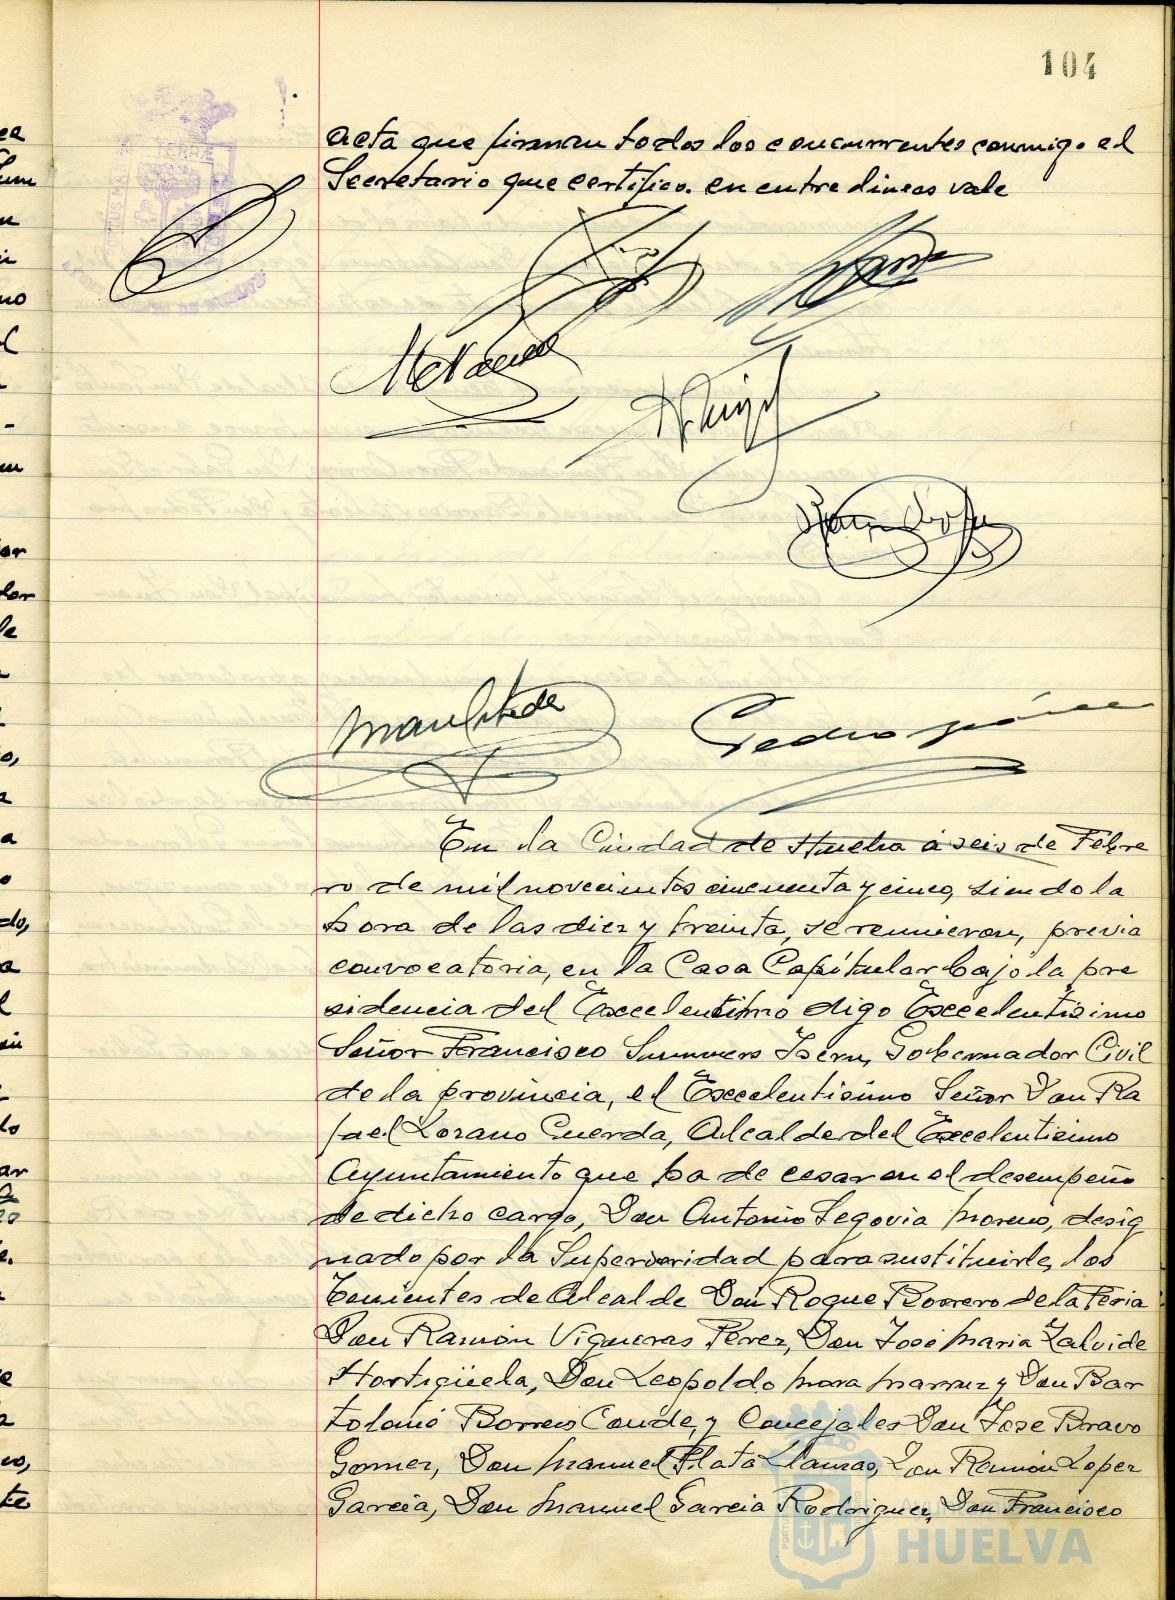 104
acta que firman todos los concurrentes conmigo el
Secretario que certifico. en entre lineas vale
Pedro
En la Ciudad de Huelva á seis de Febre
ro de mil novecientos cincuenta y cinco, siendo la
hora de las diez y treinta, se reunieron, previa
convocatoria, en la Casa Capitular bajo la pre
sidencia del Excelentimo digo Excelentisimo
Señor Francisco Summers Isern, Gobernador Civil
de la provincia, el Excelentisimo Señor Don Ra
fael Lozano Cuerda, Alcalde del Excelentisimo
Ayuntamiento que ha de cesar en el desempeño
de dicho cargo, Don Antonio Segovia Moreno, desig
nado por la Superioridad para sustituirle, los
Tenientes de Alcalde Don Roque Borrero de la Feria
Don Ramón Vigueras Pérez, Don José Maria Zalvide
Hortigüela, Don Leopoldo Mora y Don Bar
tolomé Borrero Conde, y Concejales Don Jose Bravo
Gomez, Don Manuel Plata Llanzas, Don Ramón Lopez
Garcia, Don Manuel Garcia Rodriguez, Don Francisco
HUELVA